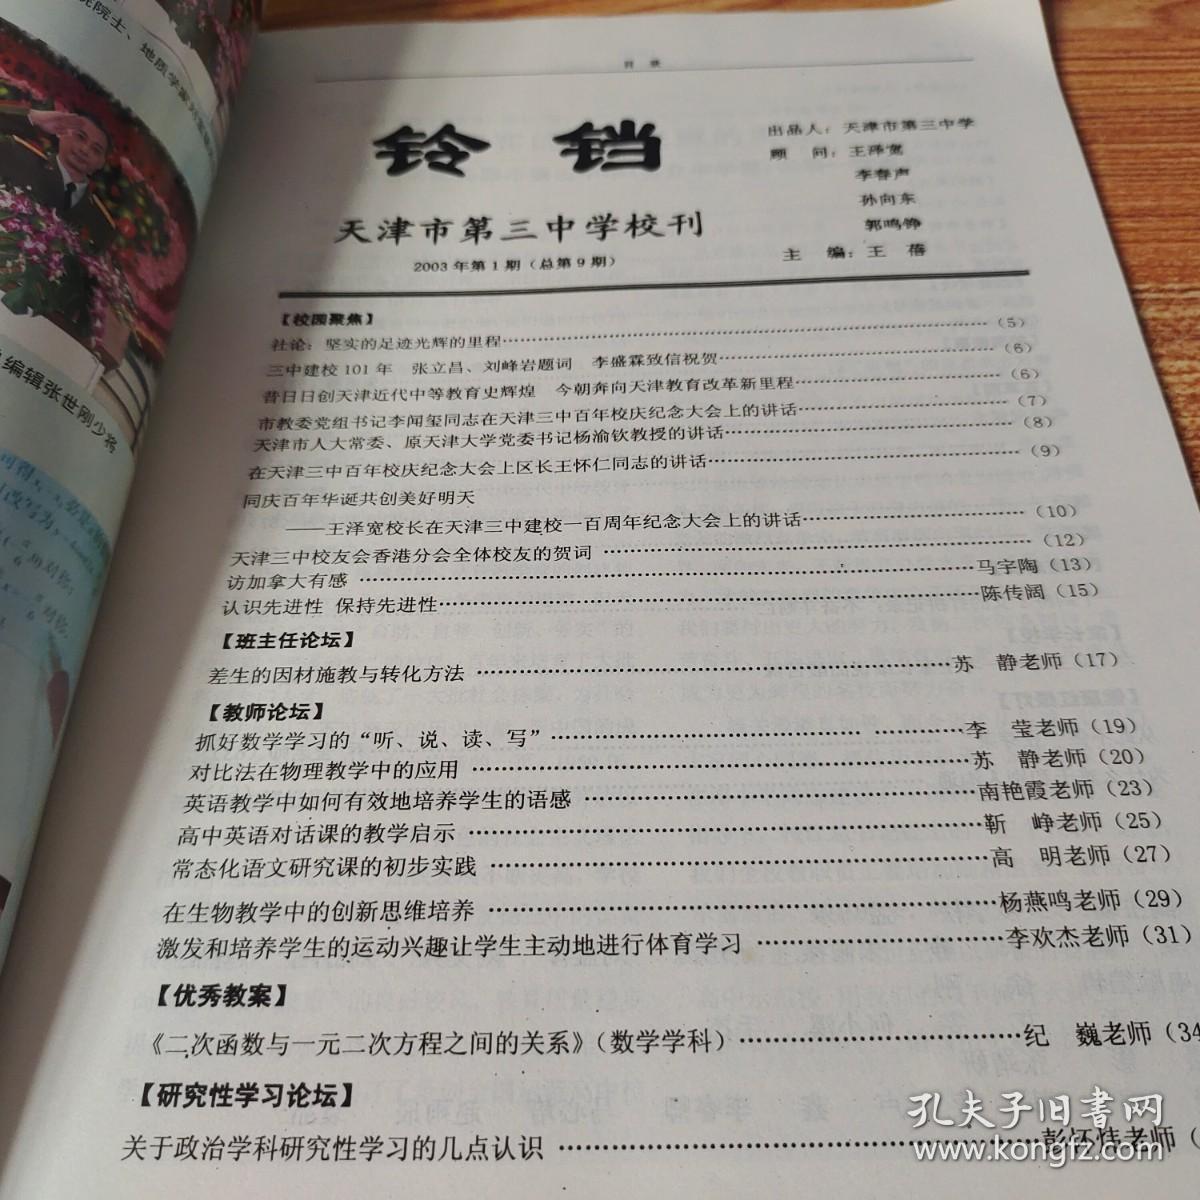 目 录
铃 铛
天津市第三中学校刊
2003年第1期（总第9期）
出品人：天津市第三中学
顾 问：王泽宽
李春声
孙向东
郭鸣铮
主 编：王 蓓
【校园聚焦】
社论：坚实的足迹光辉的里程……（5）
三中建校101年 张立昌、刘峰岩题词 李盛霖致信祝贺……（6）
昔日日创天津近代中等教育史辉煌 今朝奔向天津教育改革新里程……（6）
市教委党组书记李闻玺同志在天津三中百年校庆纪念大会上的讲话……（7）
天津市人大常委、原天津大学党委书记杨渝钦教授的讲话……（8）
在天津三中百年校庆纪念大会上区长王怀仁同志的讲话……（9）
同庆百年华诞共创美好明天
——王泽宽校长在天津三中建校一百周年纪念大会上的讲话……（10）
天津三中校友会香港分会全体校友的贺词……（12）
访加拿大有感……马宇陶（13）
认识先进性 保持先进性……陈传阔（15）
【班主任论坛】
差生的因材施教与转化方法……苏 静老师（17）
【教师论坛】
抓好数学学习的“听、说、读、写”……李 莹老师（19）
对比法在物理教学中的应用……苏 静老师（20）
英语教学中如何有效地培养学生的语感……南艳霞老师（23）
高中英语对话课的教学启示……靳 峥老师（25）
常态化语文研究课的初步实践……高 明老师（27）
在生物教学中的创新思维培养……杨燕鸣老师（29）
激发和培养学生的运动兴趣让学生主动地进行体育学习……李欢杰老师（31）
【优秀教案】
《二次函数与一元二次方程之间的关系》（数学学科）……纪 巍老师（34
【研究性学习论坛】
关于政治学科研究性学习的几点认识……彭怀炜老师（
院士、地质学家刘
编辑张世刚少将
孔夫子旧书网
www.kongfz.com